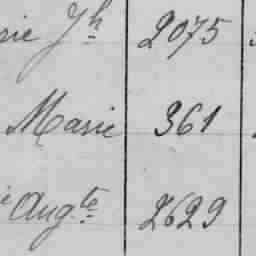 Jh 2075
Marie 361
Augte 2629